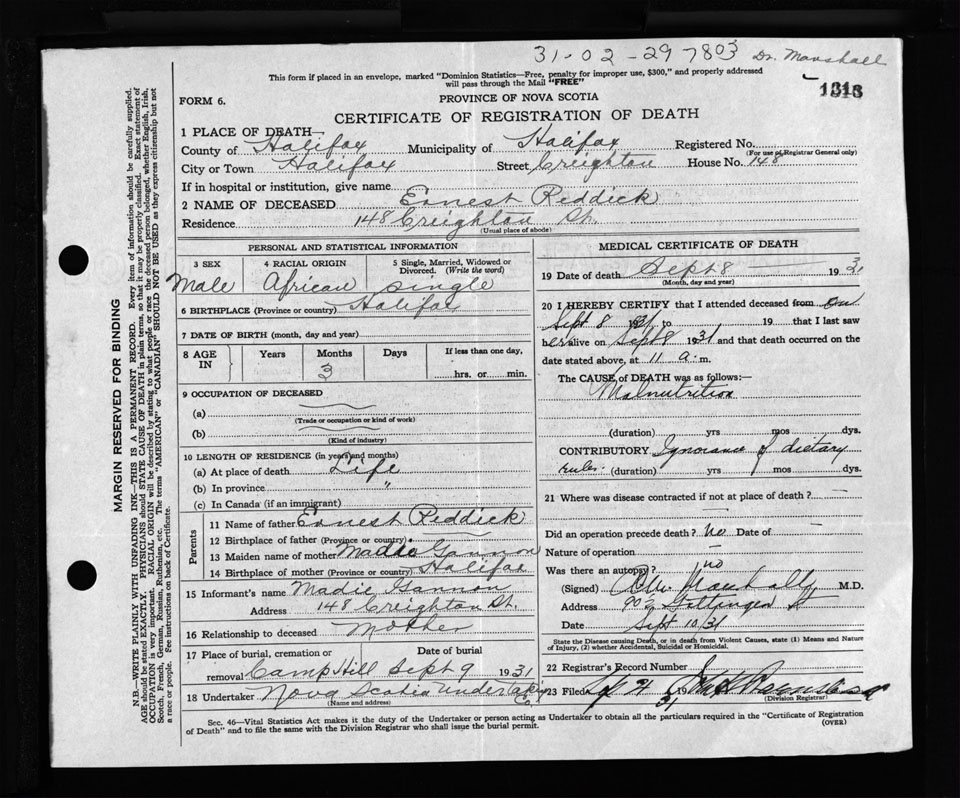 31-02-297803 Dr. Marshall
This form if placed in an envelope, marked "Dominion Statistics—Free, penalty for improper use, $300," and properly addressed
will pass through the Mail "FREE"
1318
FORM 6.
PROVINCE OF NOVA SCOTIA
CERTIFICATE OF REGISTRATION OF DEATH
1 PLACE OF DEATH—
County of Halifax Municipality of Halifax Registered No.
(For use of Registrar General only)
City or Town Halifax Street Creighton House No. 148
If in hospital or institution, give name
2 NAME OF DECEASED Ernest Reddick
Residence 148 Creighton St.
(Usual place of abode)
PERSONAL AND STATISTICAL INFORMATION
3 SEX 4 RACIAL ORIGIN 5 Single, Married, Widowed or
Divorced. (Write the word)
Male African Single
6 BIRTHPLACE (Province or country) Halifax
7 DATE OF BIRTH (month, day and year)
8 AGE IN Years Months Days If less than one day,
3 hrs. or min.
9 OCCUPATION OF DECEASED
(a)
(Trade or occupation or kind of work)
(b)
(Kind of industry)
10 LENGTH OF RESIDENCE (in years and months)
(a) At place of death Life
(b) In province "
(c) In Canada (if an immigrant)
Parents
11 Name of father Ernest Reddick
12 Birthplace of father (Province or country)
13 Maiden name of mother Madie Gannon
14 Birthplace of mother (Province or country) Halifax
15 Informant's name Madie Gannon
Address 148 Creighton St.
16 Relationship to deceased Mother
17 Place of burial, cremation or Date of burial
removal Camp Hill Sept 9 1931
18 Undertaker Nova Scotia Undertaking Co
(Name and address)
MEDICAL CERTIFICATE OF DEATH
19 Date of death Sept 8 1931
(Month, day and year)
20 I HEREBY CERTIFY that I attended deceased from on
Sept 8 1931 to 19 that I last saw
her alive on Sept 8 1931 and that death occurred on the
date stated above, at 11 a.m.
The CAUSE of DEATH was as follows:—
Malnutrition
(duration) yrs mos dys.
CONTRIBUTORY Ignorance of dietary
rules. (duration) yrs mos dys.
21 Where was disease contracted if not at place of death? —
Did an operation precede death? No Date of —
Nature of operation —
Was there an autopsy? no
(Signed) Marshall M.D.
Address 90½ Gottingen St
Date Sept 10/31
State the Disease causing Death, or in death from Violent Causes, state (1) Means and Nature
of Injury, (2) whether Accidental, Suicidal or Homicidal.
22 Registrar's Record Number
23 Filed 1931
(Division Registrar)
Sec. 46—Vital Statistics Act makes it the duty of the Undertaker or person acting as Undertaker to obtain all the particulars required in the "Certificate of Registration
of Death" and to file the same with the Division Registrar who shall issue the burial permit.
(OVER)
MARGIN RESERVED FOR BINDING
N.B.—WRITE PLAINLY WITH UNFADING INK—THIS IS A PERMANENT RECORD. Every item of information should be carefully supplied.
AGE should be stated EXACTLY. PHYSICIANS should STATE CAUSE OF DEATH in plain terms, so that it may be properly classified. Exact statement of
OCCUPATION is very important. RACIAL ORIGIN will be described by stating to what people or race the deceased person belonged, whether English, Irish,
Scotch, French, German, Russian, Ruthenian, etc. The terms "AMERICAN" or "CANADIAN" SHOULD NOT BE USED as they express citizenship but not
a race or people. See instructions on back of Certificate.